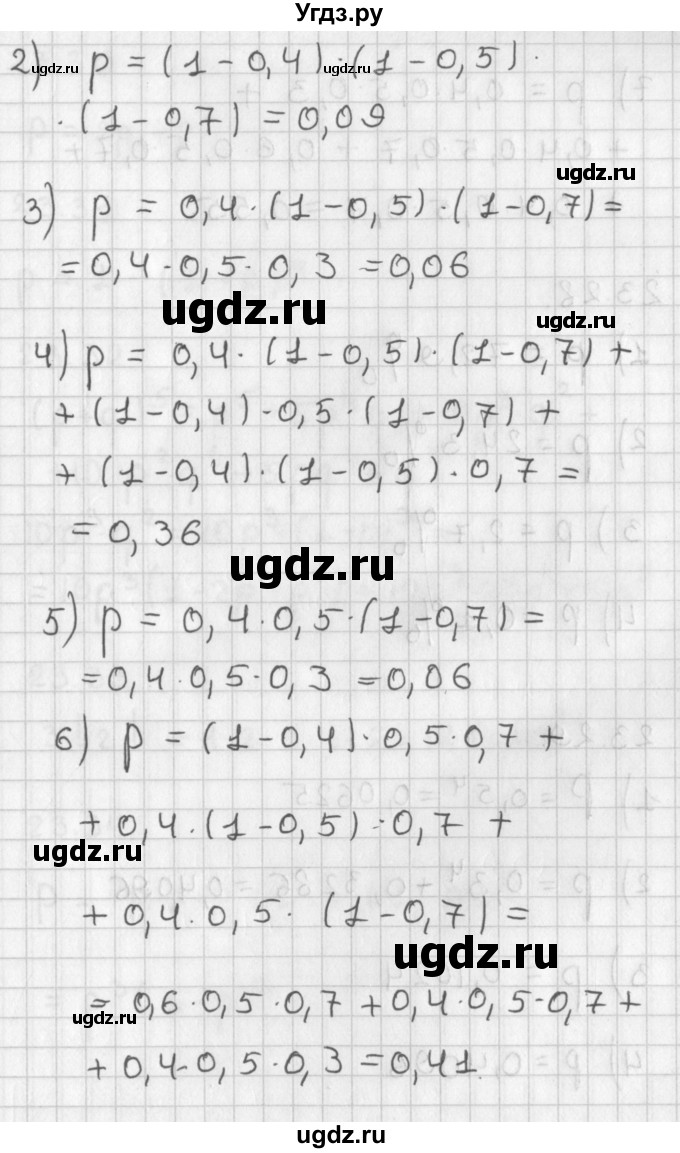 Угдз.ру
2) p = (1 - 0,4) · (1 - 0,5) ·
· (1 - 0,7) = 0,09
ugdz.ru
ugdz.ru
ugdz.ru
3) p = 0,4 · (1 - 0,5) · (1 - 0,7) =
= 0,4 · 0,5 · 0,3 = 0,06
ugdz.ru
ugdz.ru
4) p = 0,4 · (1 - 0,5) · (1 - 0,7) +
+ (1 - 0,4) · 0,5 · (1 - 0,7) +
+ (1 - 0,4) · (1 - 0,5) · 0,7 =
= 0,36
ugdz.ru
5) p = 0,4 · 0,5 · (1 - 0,7) =
= 0,4 · 0,5 · 0,3 = 0,06
6) p = (1 - 0,4) · 0,5 · 0,7 +
+ 0,4 · (1 - 0,5) · 0,7 +
ugdz.ru
+ 0,4 · 0,5 · (1 - 0,7) =
ugdz.ru
= 0,6 · 0,5 · 0,7 + 0,4 · 0,5 · 0,7 +
ugdz.ru
+ 0,4 · 0,5 · 0,3 = 0,41
ugdz.ru